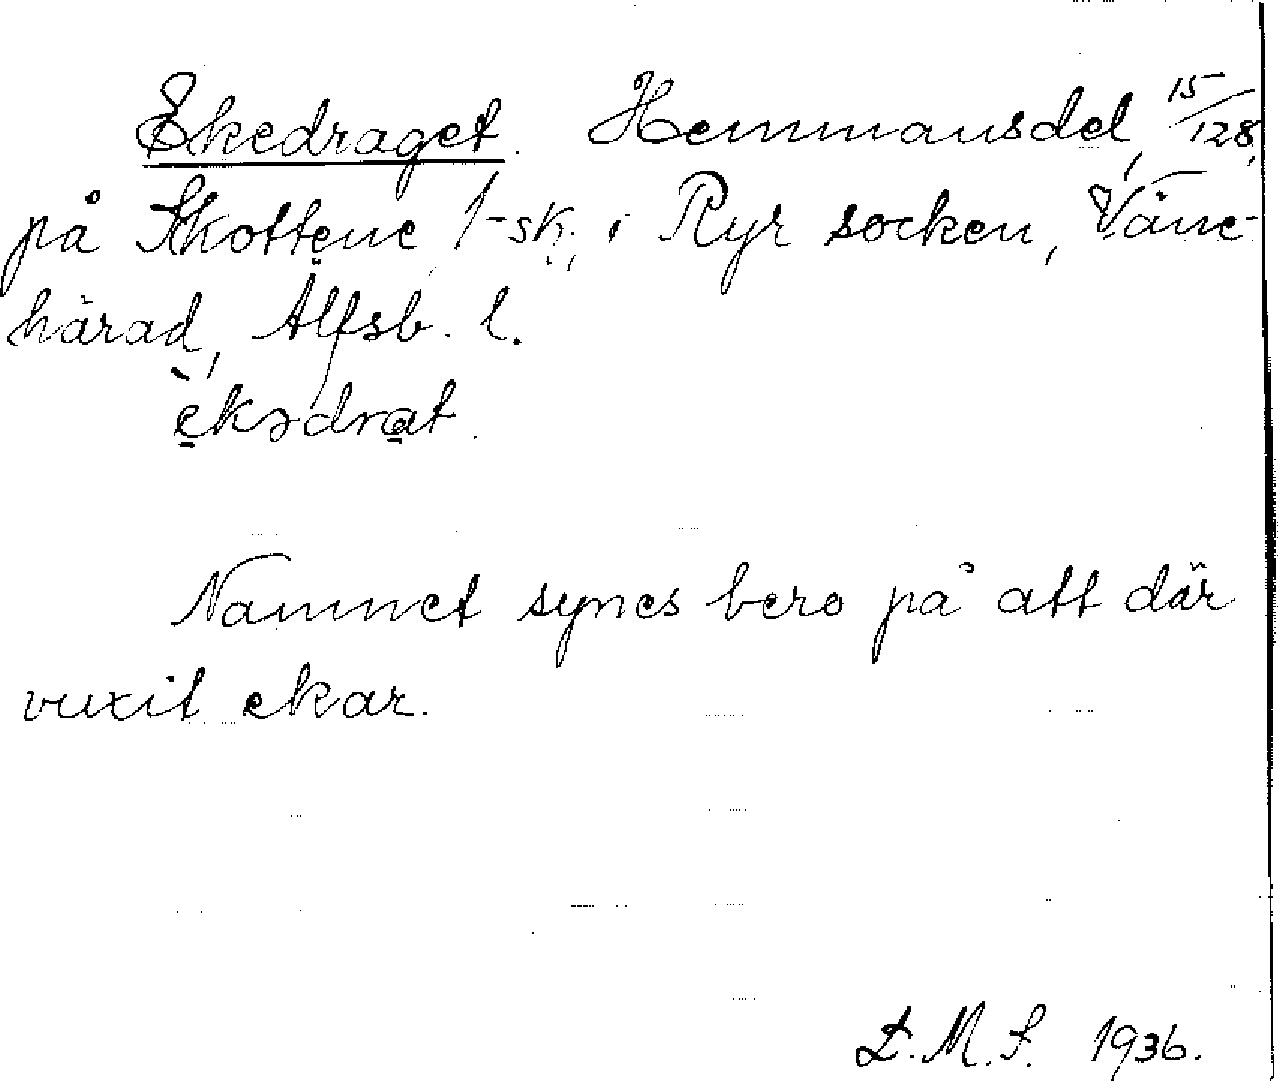 Ekedraget. Hemmansdel, 15/128,
på Skottene 1-sk., i Ryr socken, Väne-
härad, Älfsb. l.
èkədrat.
Namnet synes bero på att där
vuxit ekar.
D.M.S. 1936.